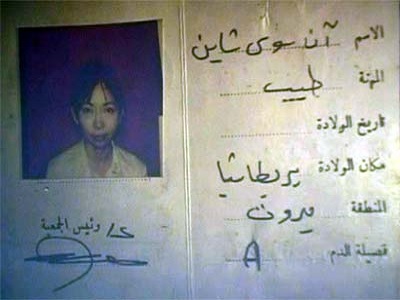 الاسم آن سوي شاين
المهنة طبيب
تاريخ الولادة
مكان الولادة بريطانيا
المنطقة بيروت
فصيلة الدم A
د/ رئيس الجمعية